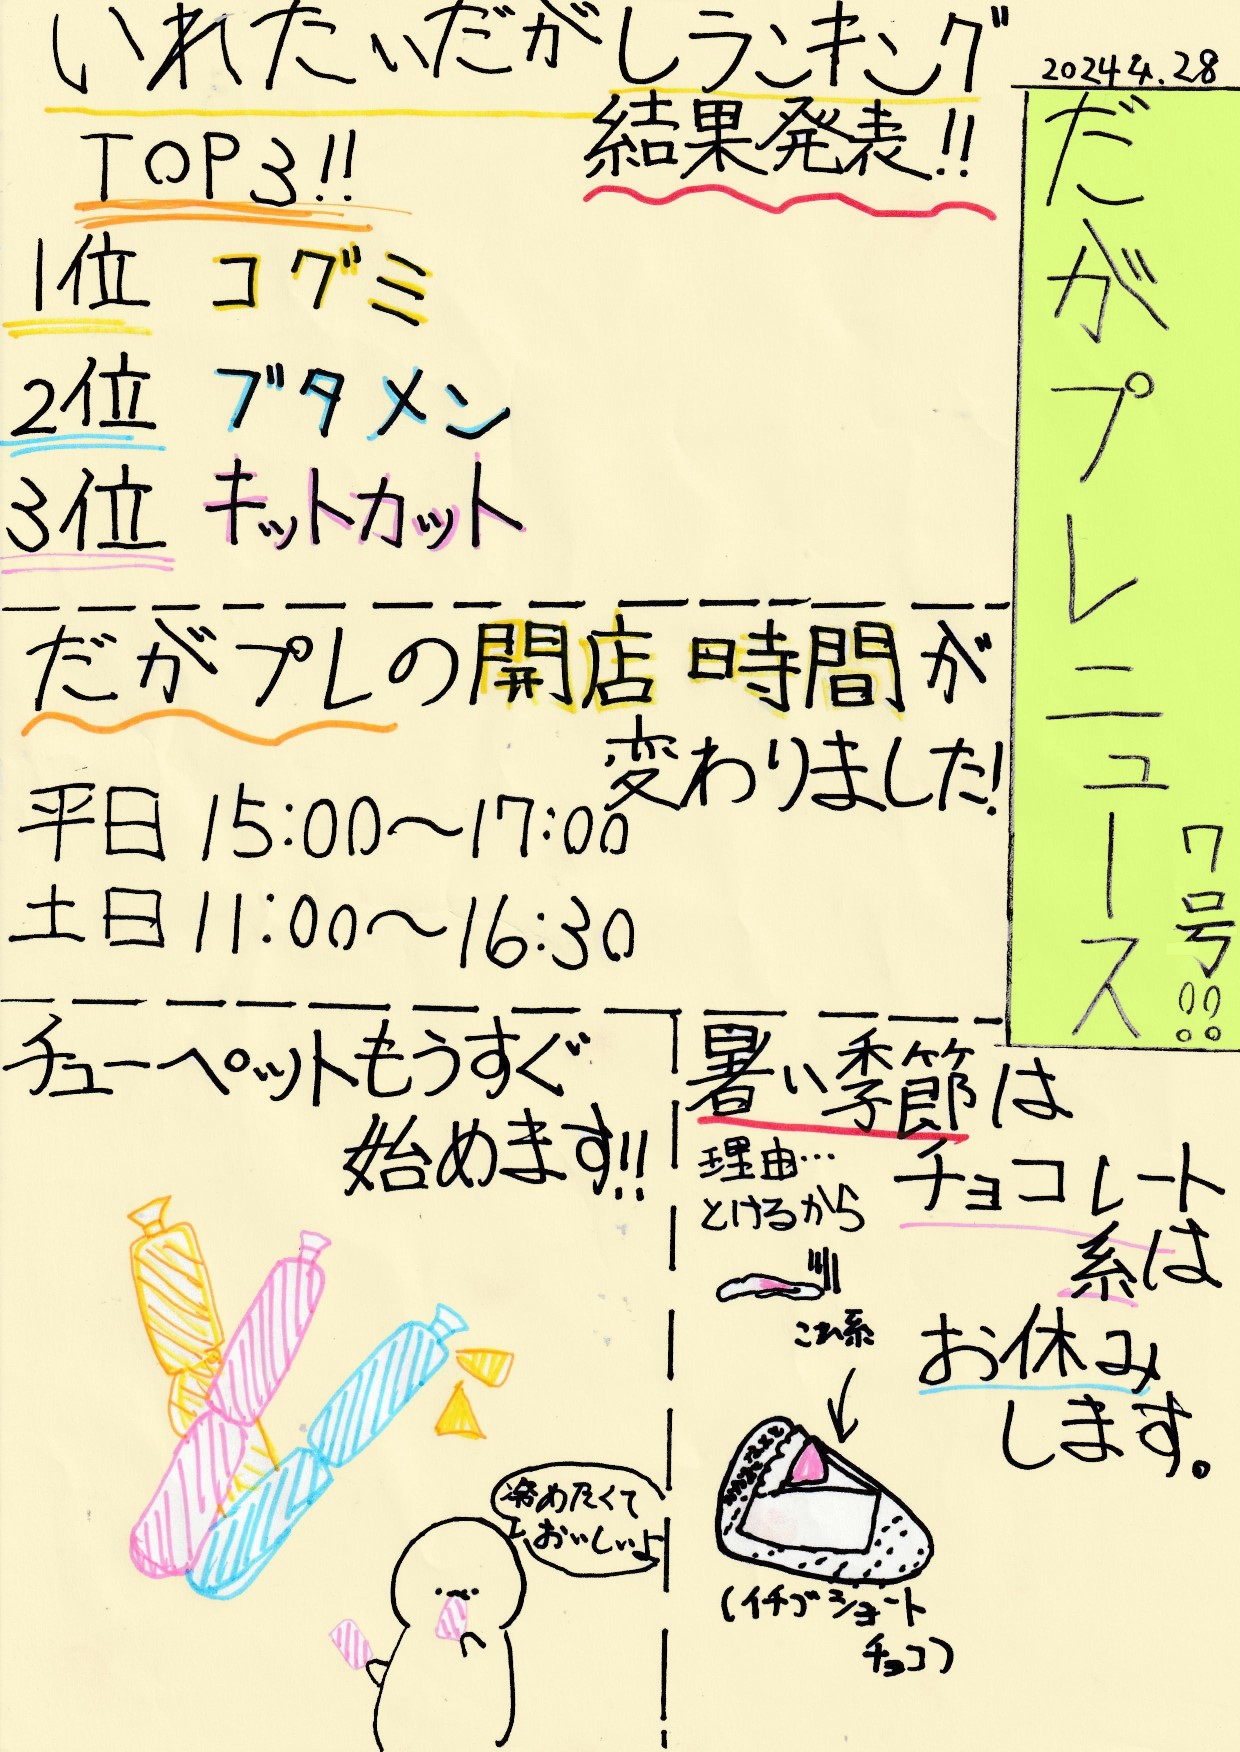 2024 4.28
だがプレニュース
7号!!
いれたいだがしランキング
結果発表!!
TOP3!!
1位 コグミ
2位 ブタメン
3位 キットカット
だがプレの開店時間が
変わりました!
平日 15:00〜17:00
土日 11:00〜16:30
暑い季節は
チョコレート
系は
お休み
します。
理由…
とけるから
これ系
(イチゴショート
チョコ)
チューペットもうすぐ
始めます!!
冷めたくて
おいしいよ